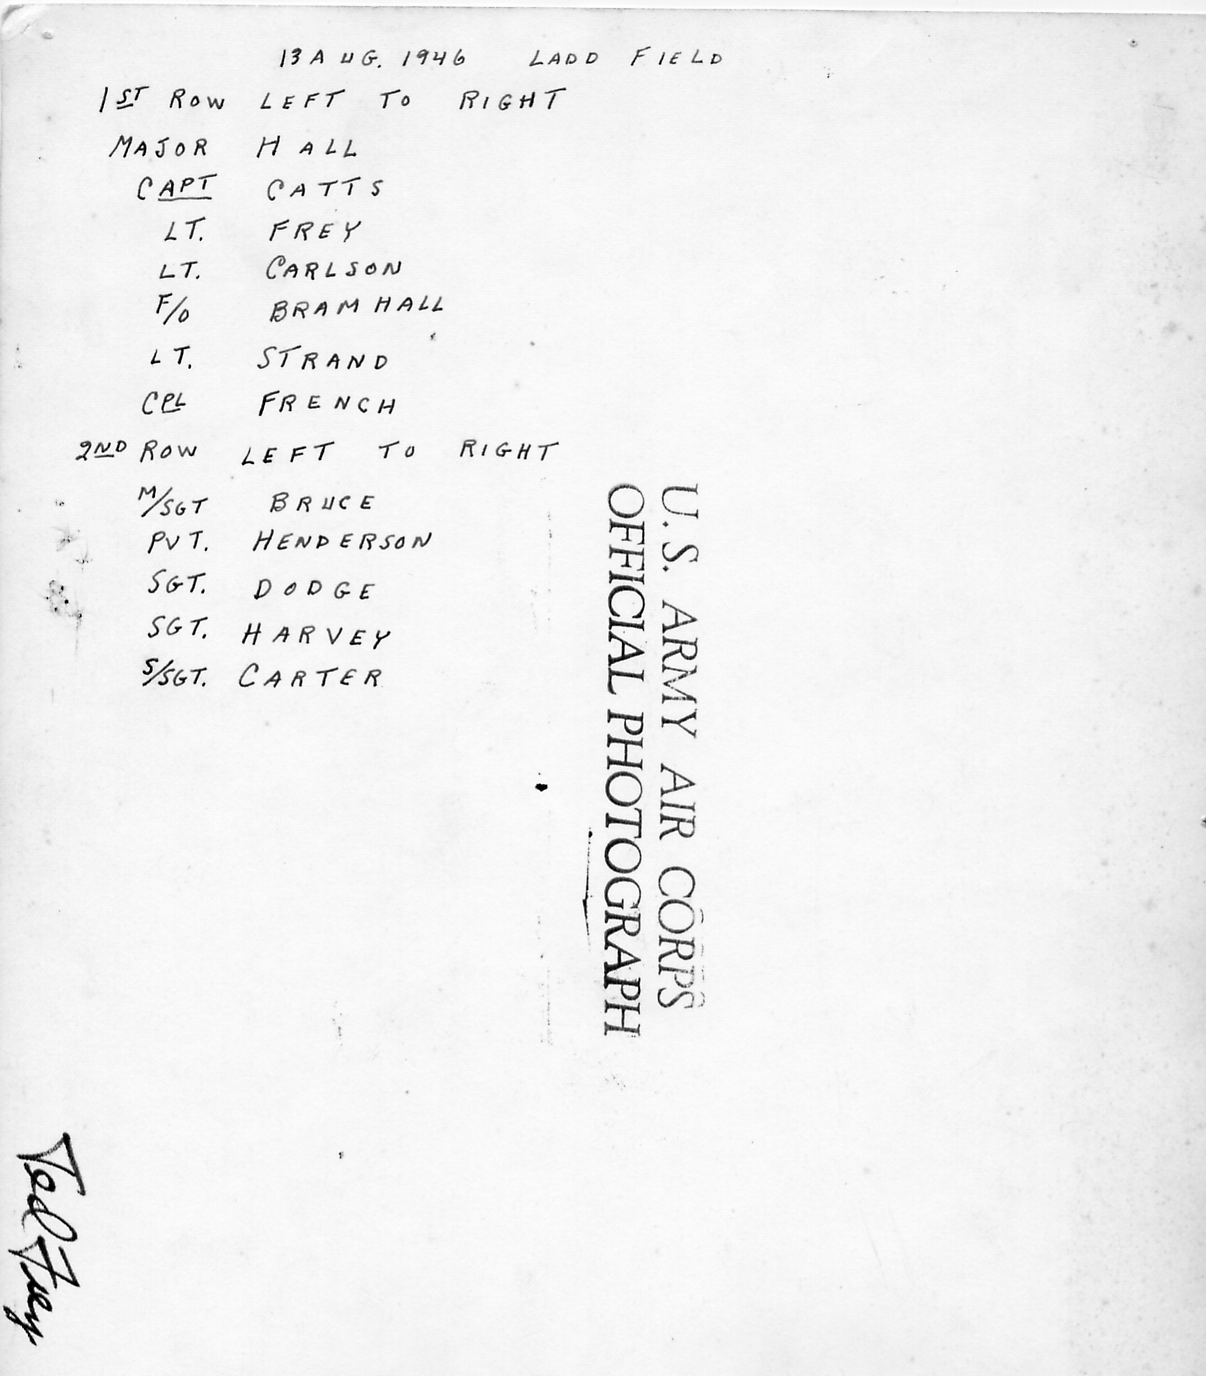 13 AUG. 1946 LADD FIELD
1ST ROW LEFT TO RIGHT
MAJOR HALL
CAPT CATTS
LT. FREY
LT. CARLSON
F/O BRAMHALL
LT. STRAND
CPL FRENCH
2ND ROW LEFT TO RIGHT
M/SGT BRUCE
PVT. HENDERSON
SGT. DODGE
SGT. HARVEY
S/SGT. CARTER
U.S. ARMY AIR CORPS
OFFICIAL PHOTOGRAPH
Ted Frey